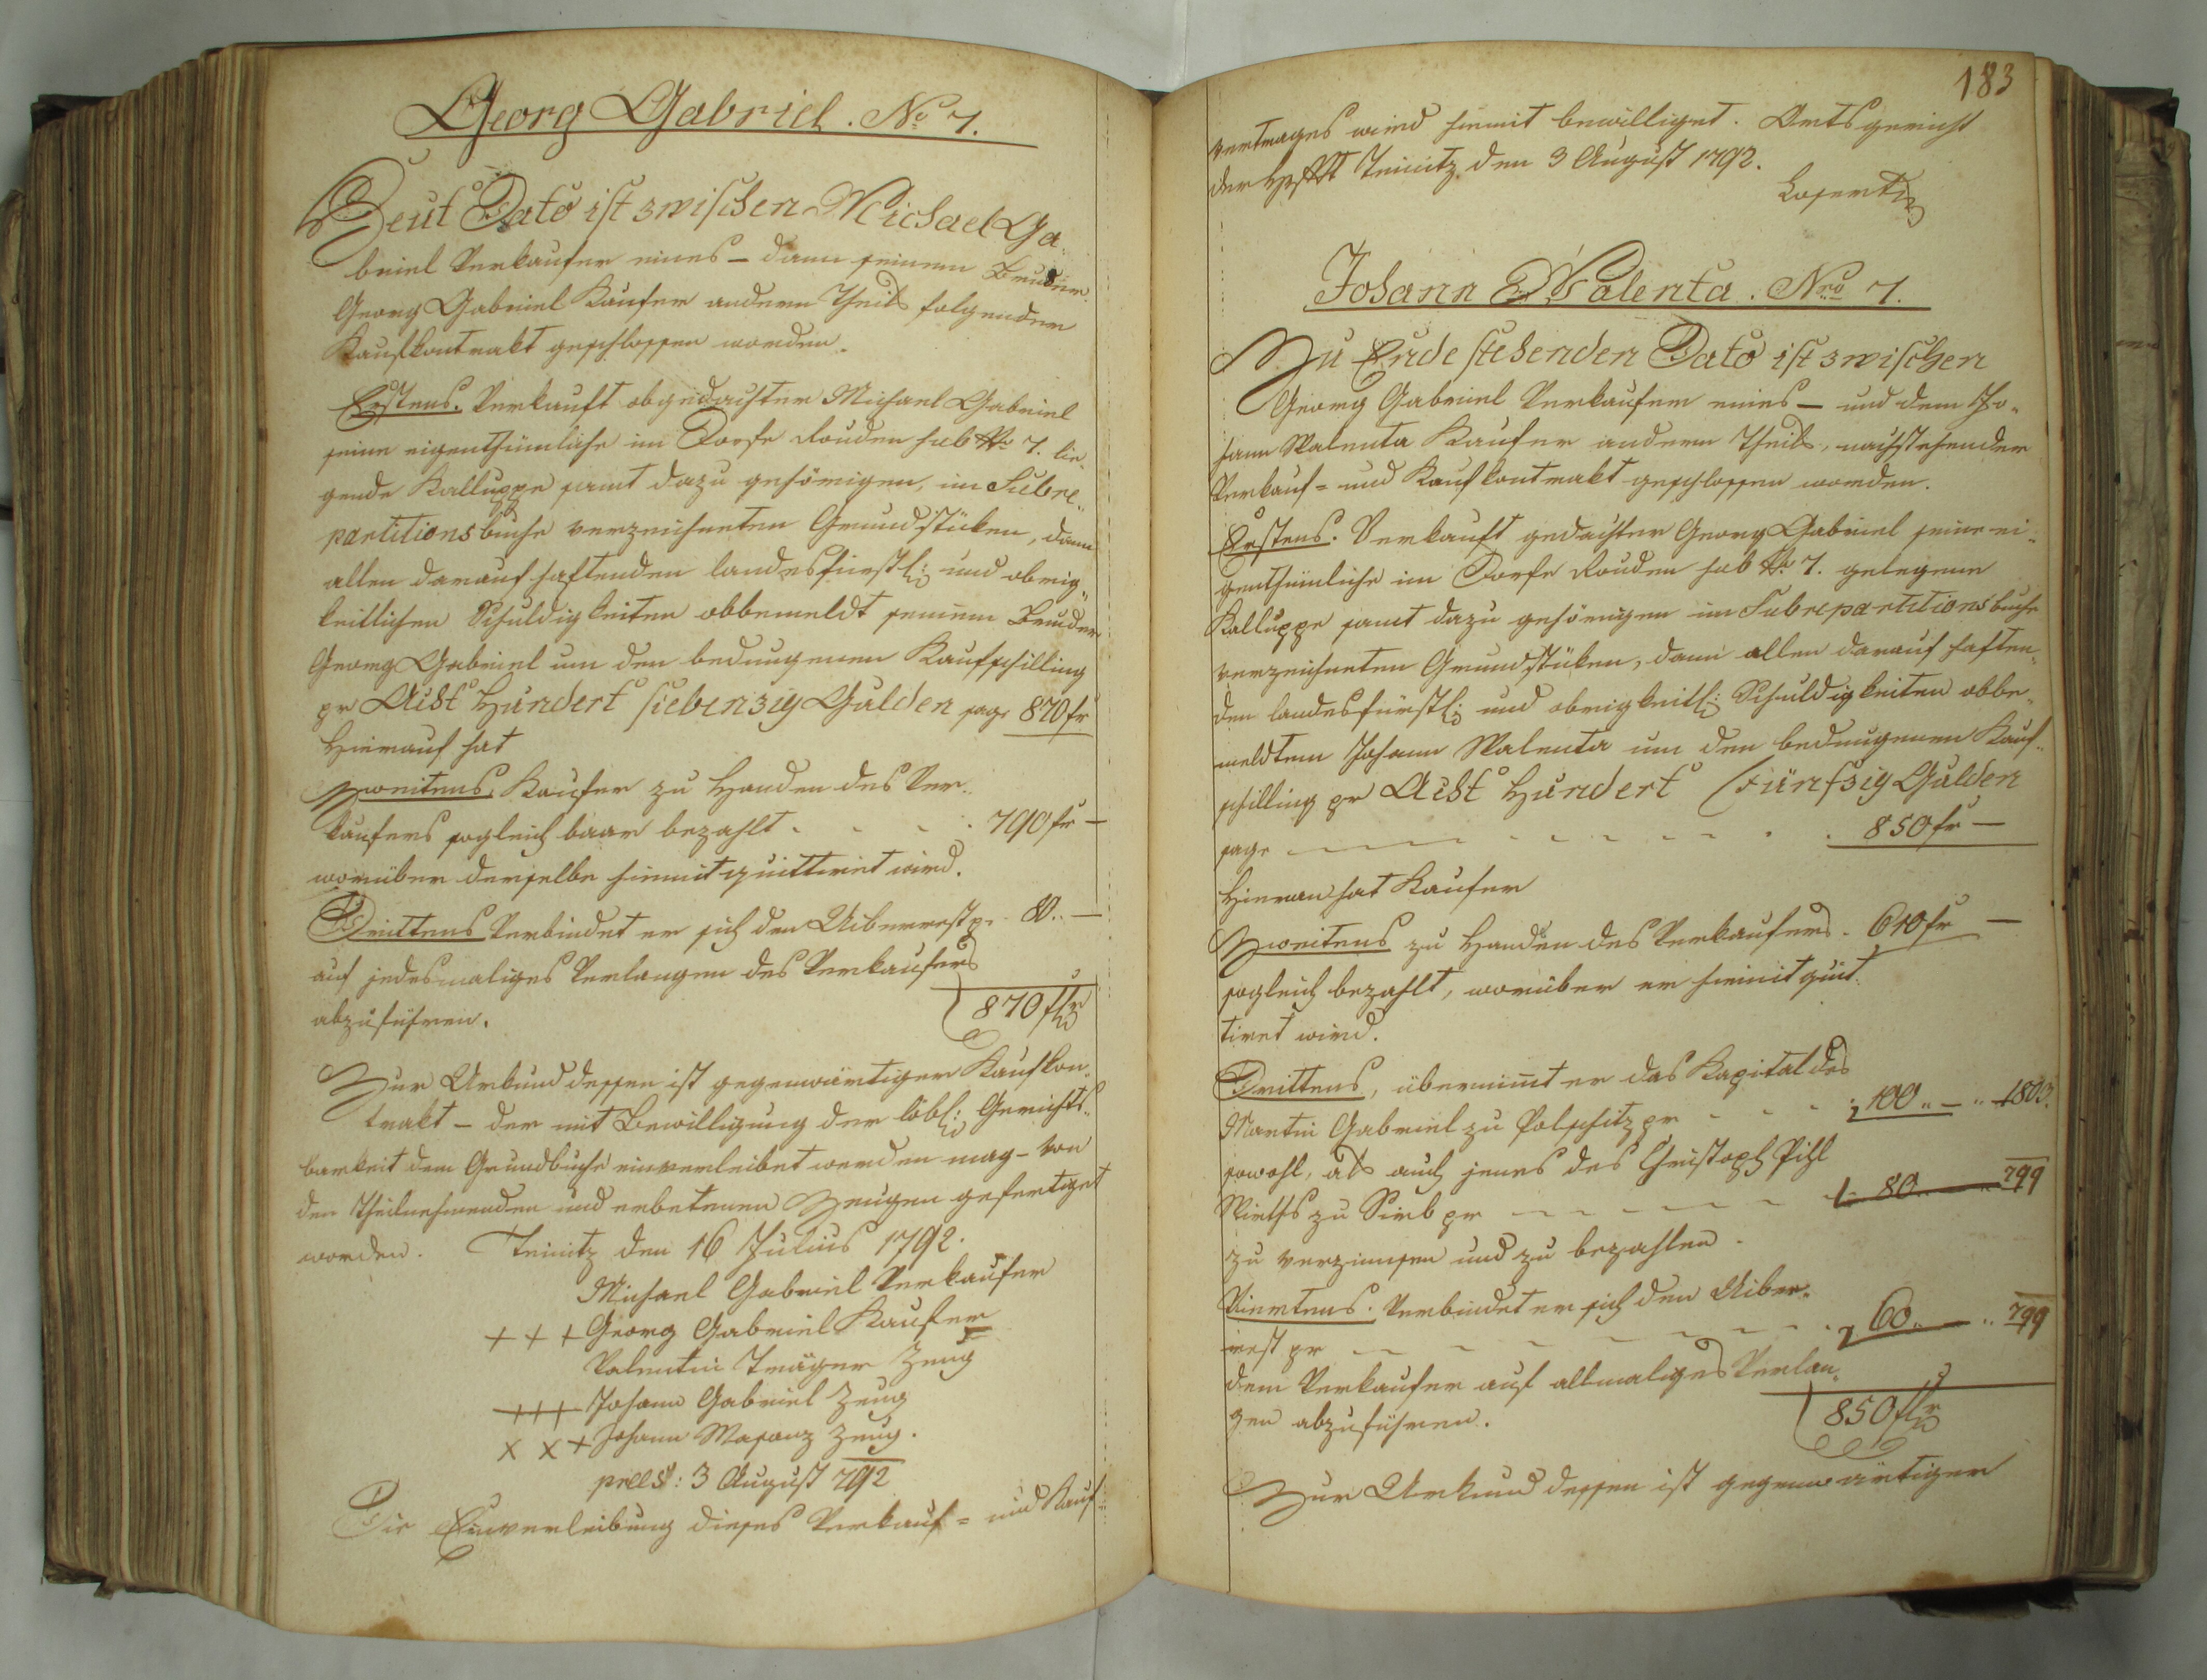 Georg Gabriel. No 7.
Heut Dato ist zwischen Michael Ga-
briel Verkaufer eines – dann seinem Bruder
Georg Gabriel Kaufer andern Theils folgender
Kaufkontrakt geschlossen worden.
Erstens. Verkauft obgedachter Michael Gabriel
seine eigenthümliche im Dorfe Rouden sub No 7. lie-
gende Kalluppe samt dazu gehörigen, im Subre-
partitionsbuche verzeichneten Grundstüken, dann
allen darauf haftenden landesfürstl: und obrig-
keitlichen Schuldigkeiten obbemeldt seinem Bruder
Georg Gabriel um den bedungenen Kaufschilling
pr Acht Hundert siebenzig Gulden sage 870 fr
Hierauf hat
Zweitens Kaufer zu Handen des Ver-
kaufers sogleich baar bezahlt . . . . 790 fr –
worüber derselbe hiemit quittiret wird.
Drittens Verbindet er sich den Uiberrest pr 80.. –
auf jedesmaliges Verlangen des Verkaufers
abzuführen. 870 flr
Zur Urkund dessen ist gegenwärtiger Kaufkon-
trakt – der mit Bewilligung der löbl: Gerichts-
barkeit dem Grundbuche einverleibet werden mag – von
den Theilnehmenden und erbetenen Zeugen gefertiget
worden. Teinitz den 16 Julius 1792.
Michael Gabriel Verkaufer
+ + + Georg Gabriel Kaufer
Valentin Träger Zeug
+++ Johann Gabriel Zeug
x x + Johann Zeug.
3 August 792
Die Einverleibung dieses Verkauf- und Kauf-
183
vertrages wird hiemit bewilliget. Amtsgericht
der Hrschft Teinitz den 3 August 1792.
Johann Walenta. Nro 7.
Zu Ende stehenden Dato ist zwischen
Georg Gabriel Verkaufer eines – und dem Jo-
hann Walenta Kaufer andern Theils, nachstehender
Verkauf- und Kaufkontrakt geschlossen worden.
Erstens. Verkauft gedachter Georg Gabriel seine ei-
genthümliche im Dorfe Rouden sub No 7. gelegene
Kalluppe samt dazu gehörigen im Subrepartitionsbuche
verzeichneten Grundstüken, dann allen darauf haften-
den landesfürstl: und obrigkeitl: Schuldigkeiten obbe-
meldtem Johann Walenta um den bedungenen Kauf-
schilling pr Acht Hundert Fünfzig Gulden
sage 850 fr –
Hieran hat Kaufer
Zweitens zu Handen des Verkaufers . 610 fr –
sogleich bezahlt, worüber er hiemit quit-
tiret wird.
Drittens, übernimmt er das Kapital des
Martin Gabriel zu pr . . . 100 .. – .. 1803.
sowohl, als auch jenes des Christoph Pihl
Wirths zu Sirb pr 80 799
zu verzinnsen und zu bezahlen.
Viertens. Verbindet er sich den Uiber-
rest pr 60.. – .. 799
dem Verkaufer auf allmaliges Verlan-
gen abzuführen. 850 flr
Zur Urkund dessen ist gegenwärtiger